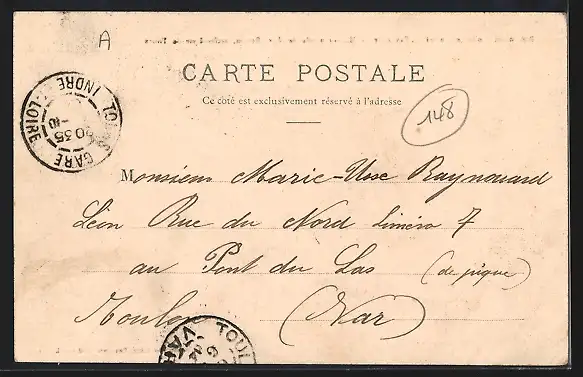 A
CARTE POSTALE
Ce côté est exclusivement réservé à l'adresse
148
TOURS GARE INDRE LOIRE
20 35
Monsieur Marie-Use Raynouard
Léon Rue du Nord Liméro 7
au Pont du Las (de pique)
Toulon (Var)
TOUL
VAR